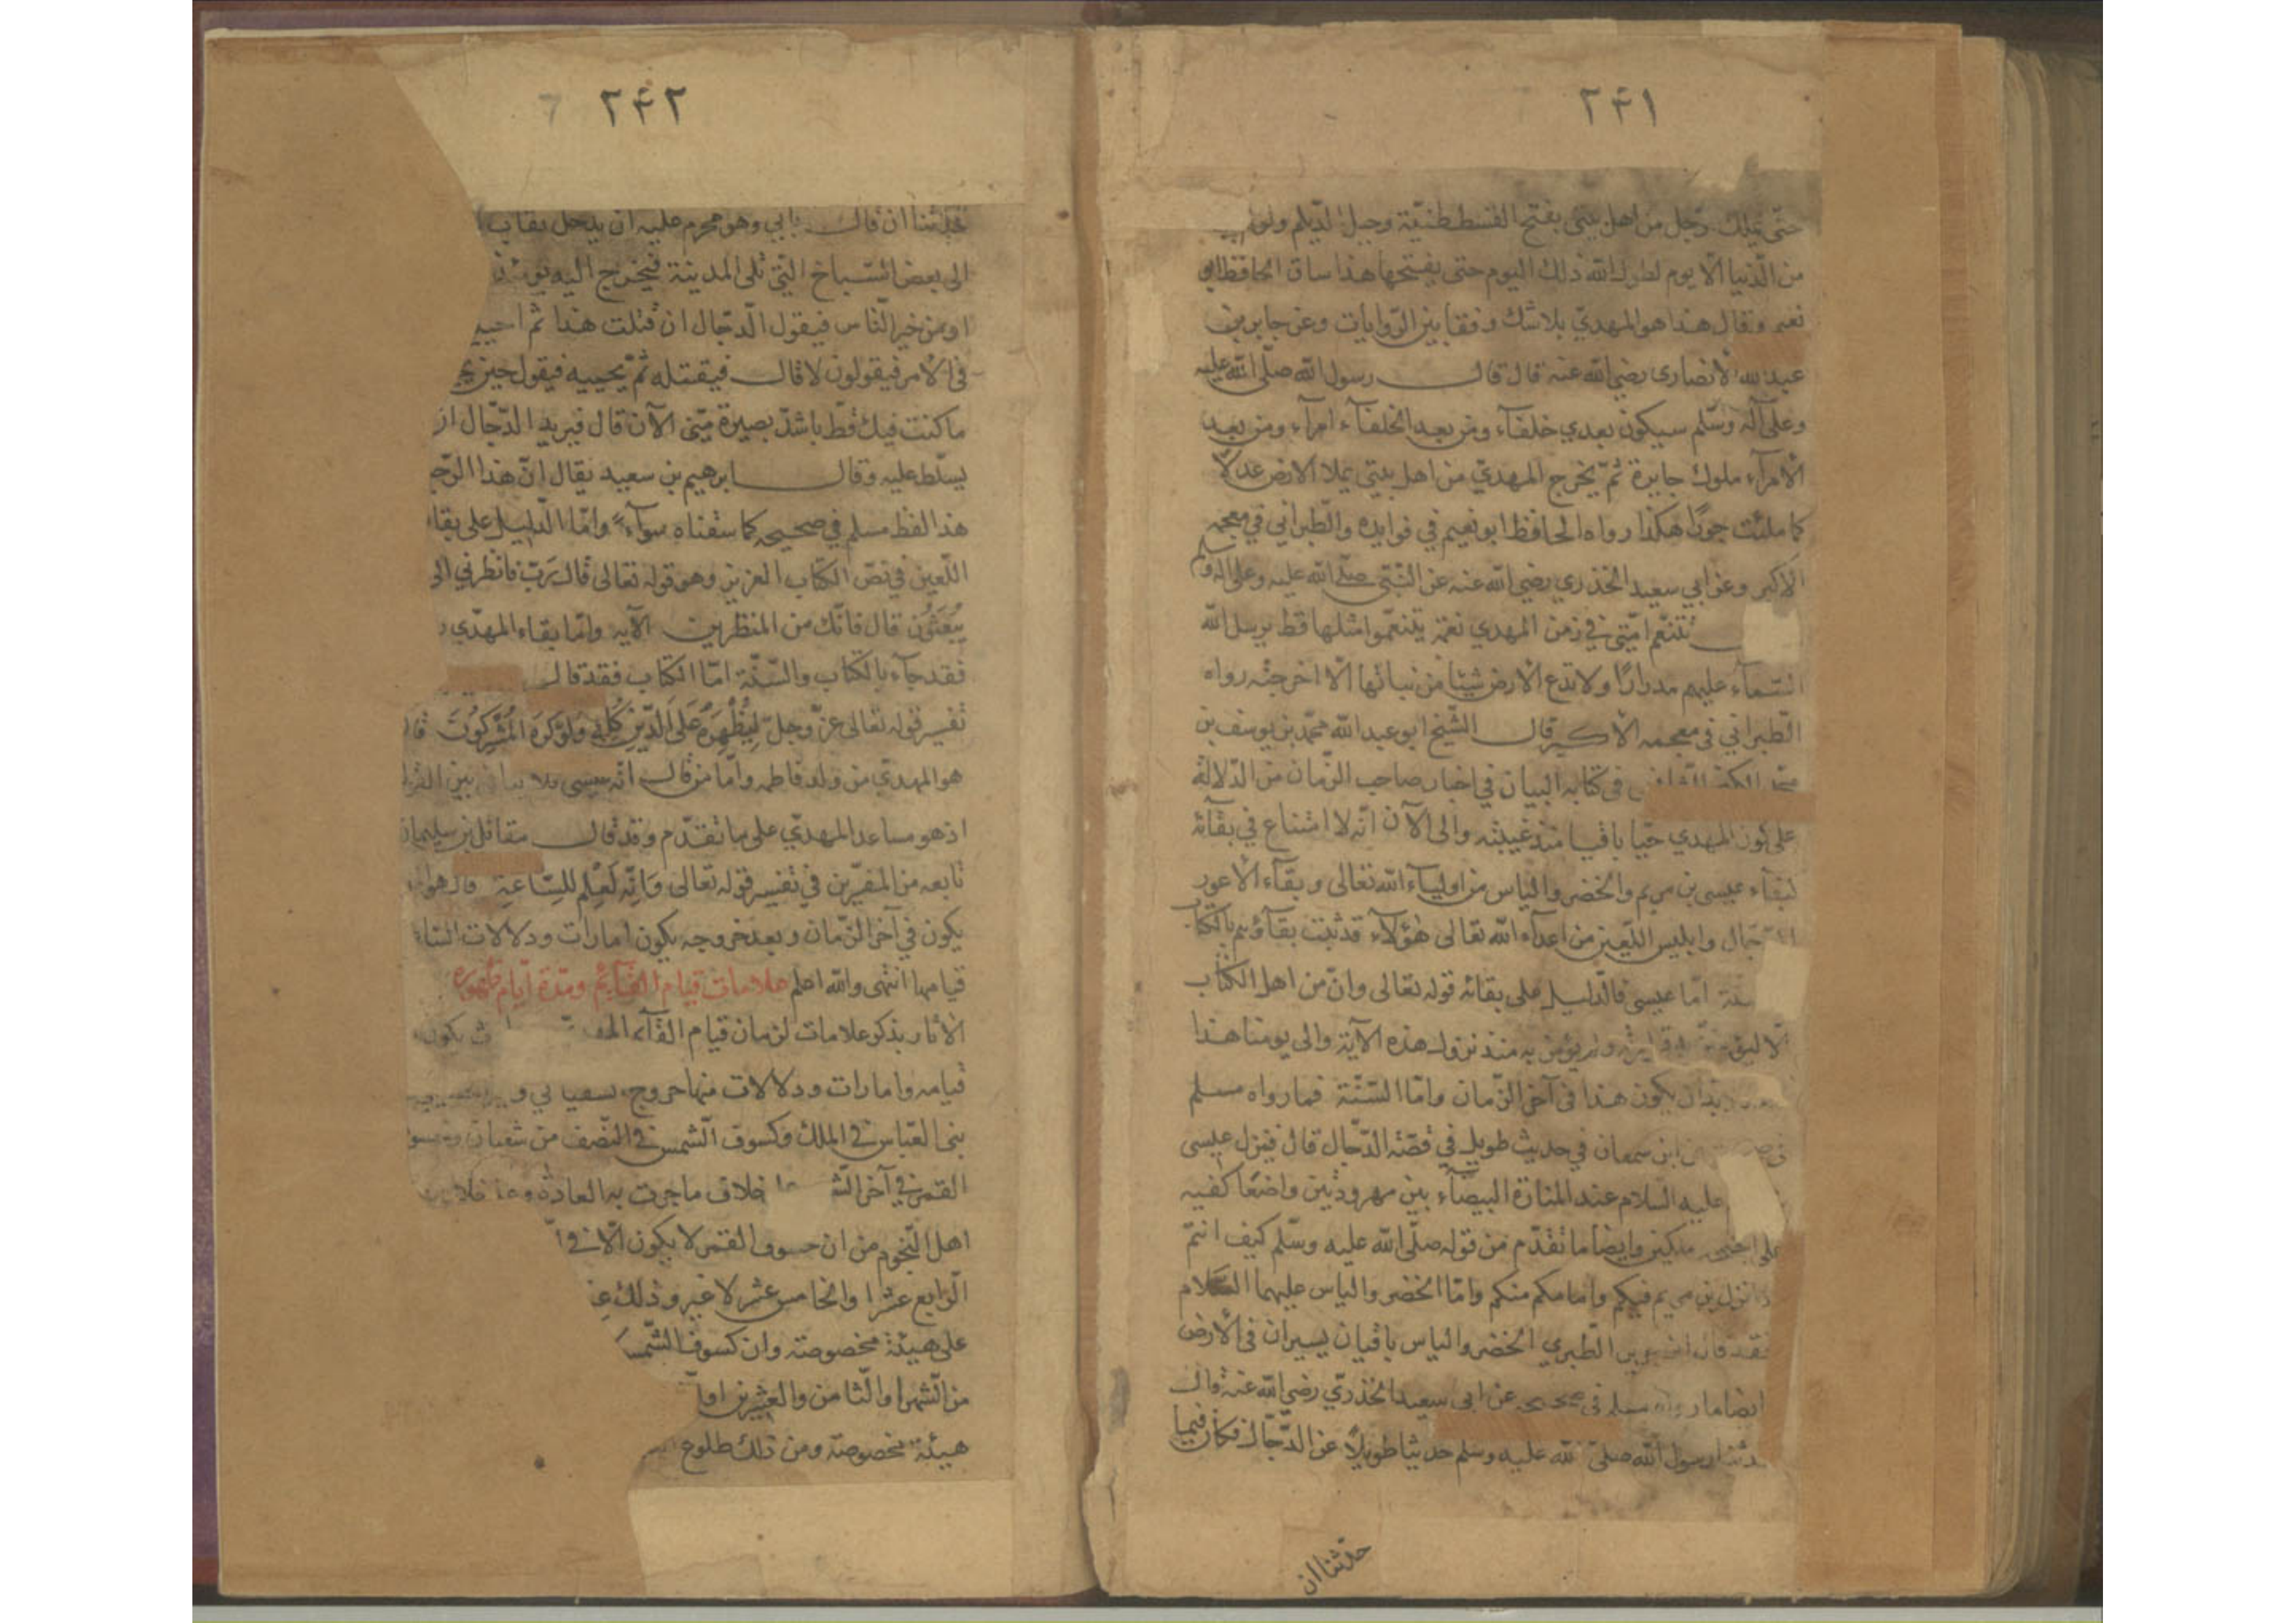 ۲۴۱
حتّى يملك رجل من اهل بيتى يفتح القسطنطنيّة وجبل الدّيلم ولو لم
من الدّنيا الّا يوم لطول الله ذلك اليوم حتى يفتحها هذا ساق الحافظ ابو
نعيم وقال هذا هو المهديّ بلا شك وفقا بين الرّوايات وعن جابر بن
عبد الله الانصارى رضي الله عنه قال قال رسول الله صلّى الله عليه
وعلى آله وسلّم سيكون بعدي خلفآء ومن بعد الخلفآء امرآء ومن بعد
الامرآء ملوك جايرة ثمّ يخرج المهديّ من اهل بيتي يملا الارض عدلا
كما ملئت جورًا هكذا رواه الحافظ ابو نعيم في فوايده والطبراني في معجمه
الاكبر وعن ابي سعيد الخذري رضي الله عنه عن النّبّى صلى الله عليه وعلى اله وسلم
تتنعّم امّتى في زمن المهدي نعمة يتنعّموا مثلها قط يرسل الله
السّمآء عليهم مدرارًا ولا تدع الارض شيئا من نباتها الّا اخرجته رواه
الطّبراني في معجمه الاكبر قال الشّيخ ابو عبد الله محمّد بن يوسف بن
محمّد الكنجي الشّافعي في كتابه البيان في اخبار صاحب الزّمان من الدّلالة
على كون المهدي حيّا باقيا منذ غيبته والى الآن انّه لا امتناع في بقآئه
كبقآء عيسى بن مريم والخضر والياس من اوليآء الله تعالى وبقآء الاعور
الدّجّال وابليس اللّعين من اعدآء الله تعالى هؤلآء قد ثبت بقآؤهم بالكتاب
امّا عيسى فالدّليل على بقائه قوله تعالى وان من اهل الكتاب
الّا ليؤمننّ به ولم يؤمن به منذ نزول هذه الآية والى يومنا هذا
بدّ ان يكون هذا في آخر الزّمان وامّا السّنّة فما رواه مسلم
ابن سمعان في حديث طويل في قصّة الدّجّال قال فينزل عيسى
عليه السلام عند المنارة البيضآء بين مهرودتين واضعًا كفيه
على اجنحة ملكين وايضا ما تقدّم من قوله صلّى الله عليه وسلّم كيف انتم
اذا نزل بن مريم فيكم وامامكم منكم وامّا الخضر والياس عليهما السّلام
فقد قال ابن جرير الطّبري الخضر والياس باقيان يسيران في الارض
ايضا ما رواه مسلم في صحيحه عن ابى سعيد الخذريّ رضي الله عنه قال
حدثنا رسول الله صلّى الله عليه وسلم حديثا طويلًا عن الدّجّال فكان فيما
حدّثنا ان
۲۴۲
حدّثنا ان قال يأتي وهو محرم عليه ان يدخل بقاب
الى بعض السّباخ التي تلى المدينة فيخرج اليه يومئذ
او من خير النّاس فيقول الدّجّال ان قتلت هذا ثم احييته
في الامر فيقولون لا قال فيقتله ثمّ يحييه فيقول حين
ما كنت فيك قطّ باشدّ بصيرة منّى الآن قال فيريد الدّجّال ان
يسلّط عليه وقال ابرهيم بن سعيد يقال انّ هذا الرّجل
هذا لفظ مسلم في صحيحه كما سقناه سوآء وامّا الدّليل على بقاء
اللّعين في نصّ الكتاب العزيز وهو قوله تعالى قال ربّ فانظرني الى
يُبْعَثُون قال فانّك من المنظرين الآيه وامّا بقاء المهدّي
فقد جآء بالكتاب والسّنّة امّا الكتاب فقد قال
تفسير قوله تعالى عزّ وجلّ لِيُظْهِرَهُ عَلَى الدّيْنِ كُلِّهِ وَلَوْ كَرِهَ الْمُشْرِكُونَ قال
هو المهديّ من ولد فاطمه وامّا من قال انّه عيسى فلا
اذ هو مساعد المهديّ على ما تقدّم وقد قال مقاتل بن سليمان
تابعه من المفسّرين في تفسير قوله تعالى وَاِنَّهُ لَعِلْم لِلسّاعَةِ قال هو
يكون في آخر الزّمان وبعد خروجه يكون امارات ودلالات السّاعة
قيامها انتهى والله اعلم علامات قيام القآئم ومدّة ايّام ظهوره
الآثار بذكر علامات لزمان قيام القآئم يكون
قيامه وامارات ودلالات منها خروج السفياني و
بنى العبّاس في الملك وكسوف الشّمس في النّصف من شعبان
القمر في آخر خلاف ما جرت به العادة وعلى خلاف
اهل النّجوم من ان خسوف القمر لا يكون الّا في
الرّابع عشر او الخامس عشر لا غير وذلك
على هيئة مخصوصة وان كسوف الشّمس
من الشّهر او الثّامن والعشرين او
هيئة مخصوصة ومن ذلك طلوع